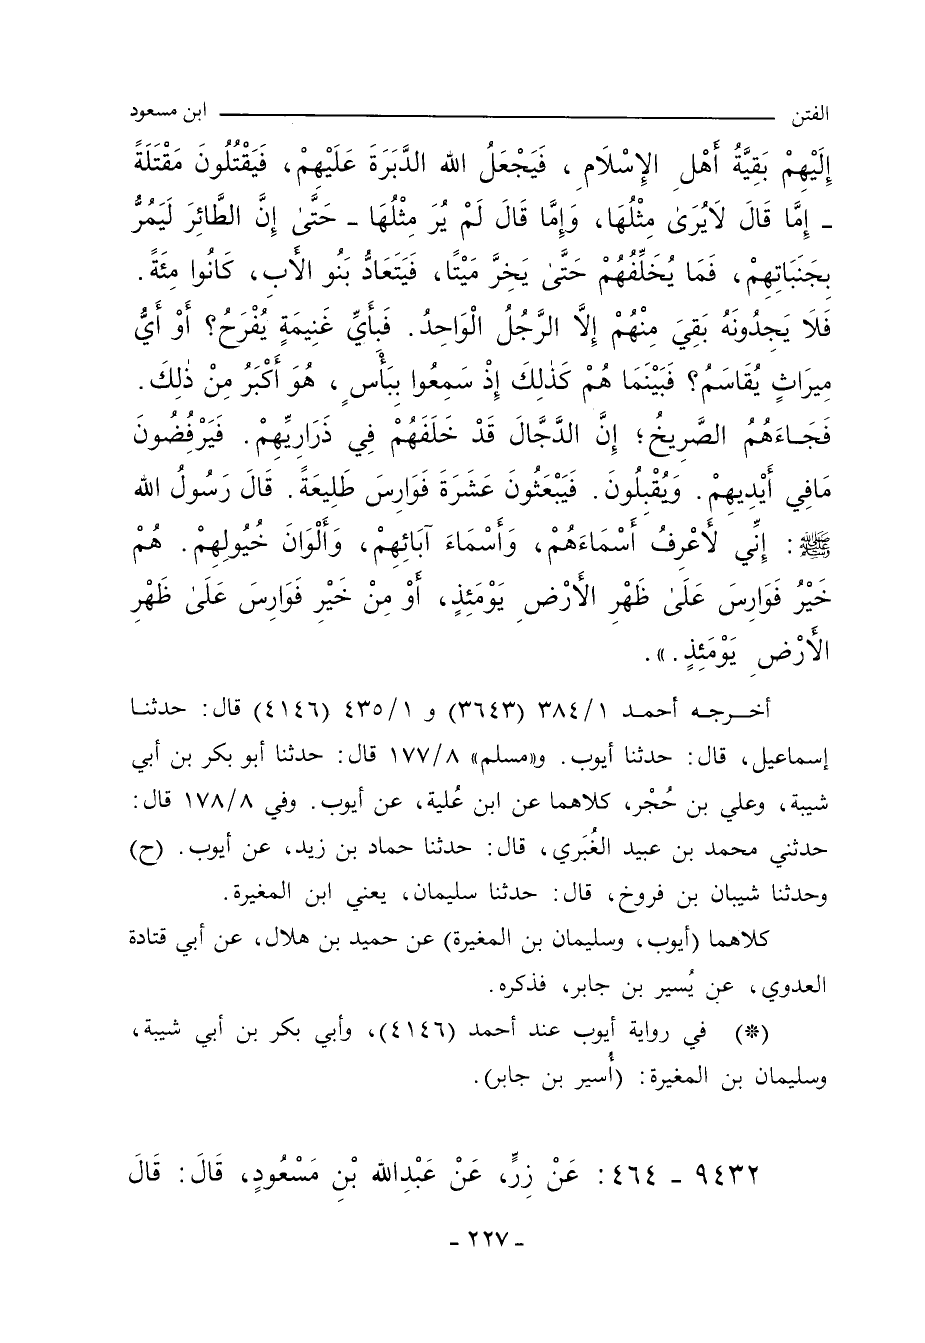 الفتن ــــــــ ابن مسعود
إِلَيْهِمْ بَقِيَّةُ أَهْلِ الإِسْلَامِ ، فَيَجْعَلُ الله الدَّبَرَةَ عَلَيْهِمْ، فَيَقْتُلُونَ مَقْتَلَةً
ـ إِمَّا قَالَ لَايُرَىٰ مِثْلُهَا، وَإِمَّا قَالَ لَمْ يُرَ مِثْلُهَا ـ حَتَّىٰ إِنَّ الطَّائِرَ لَيَمُرُّ
بِجَنَبَاتِهِمْ، فَمَا يُخَلِّفُهُمْ حَتَّىٰ يَخِرَّ مَيْتًا، فَيَتَعَادُّ بَنُو الأَبِ، كَانُوا مِئَةً .
فَلَا يَجِدُونَهُ بَقِيَ مِنْهُمْ إِلاَّ الرَّجُلُ الْوَاحِدُ. فَبِأَيِّ غَنِيمَةٍ يُفْرَحُ؟ أَوْ أَيُّ
مِيرَاثٍ يُقَاسَمُ؟ فَبَيْنَمَا هُمْ كَذٰلِكَ إِذْ سَمِعُوا بِبَأْسٍ ، هُوَ أَكْبَرُ مِنْ ذٰلِكَ .
فَجَاءَهُمُ الصَّرِيخُ؛ إِنَّ الدَّجَّالَ قَدْ خَلَفَهُمْ فِي ذَرَارِيِّهِمْ. فَيَرْفُضُونَ
مَافِي أَيْدِيهِمْ. وَيُقْبِلُونَ. فَيَبْعَثُونَ عَشَرَةَ فَوَارِسَ طَلِيعَةً. قَالَ رَسُولُ الله
ﷺ: إِنِّي لأَعْرِفُ أَسْمَاءَهُمْ، وَأَسْمَاءَ آبَائِهِمْ، وَأَلْوَانَ خُيُولِهِمْ. هُمْ
خَيْرُ فَوَارِسَ عَلَىٰ ظَهْرِ الأَرْضِ يَوْمَئِذٍ، أَوْ مِنْ خَيْرِ فَوَارِسَ عَلَىٰ ظَهْرِ
الأَرْضِ يَوْمَئِذٍ.».
أخـرجـه أحمـد ٣٨٤/١ (٣٦٤٣) و ٤٣٥/١ (٤١٤٦) قال: حدثنـا
إسماعيل، قال: حدثنا أيوب. و«مسلم» ١٧٧/٨ قال: حدثنا أبو بكر بن أبي
شيبة، وعلي بن حُجْر، كلاهما عن ابن عُلية، عن أيوب. وفي ١٧٨/٨ قال:
حدثني محمد بن عبيد الغُبَري، قال: حدثنا حماد بن زيد، عن أيوب. (ح)
وحدثنا شيبان بن فروخ، قال: حدثنا سليمان، يعني ابن المغيرة.
كلاهما (أيوب، وسليمان بن المغيرة) عن حميد بن هلال، عن أبي قتادة
العدوي، عن يُسير بن جابر، فذكره.
(*) في رواية أيوب عند أحمد (٤١٤٦)، وأبي بكر بن أبي شيبة،
وسليمان بن المغيرة: (أُسير بن جابر).
٩٤٣٢ ـ ٤٦٤: عَنْ زِرٍّ، عَنْ عَبْدِالله بْنِ مَسْعُودٍ، قَالَ: قَالَ
ـ ٢٢٧ ـ